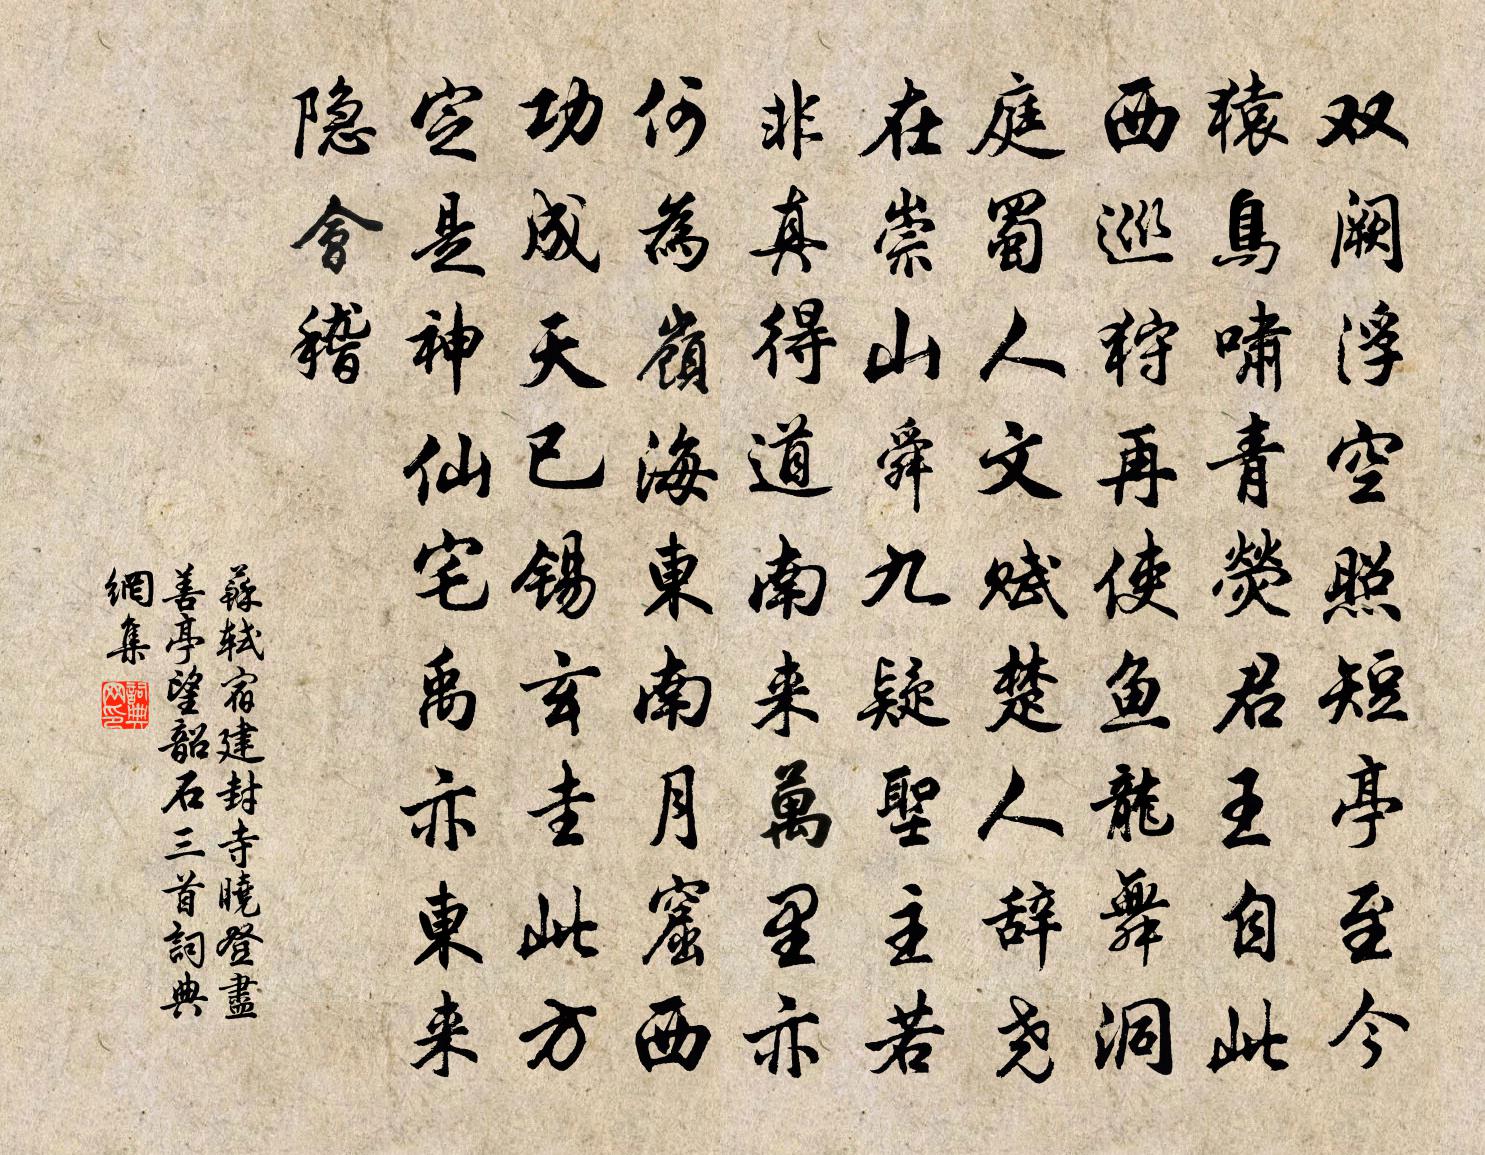 双阙浮空照短亭至今
猿鳥啸青荧君王自此
西巡狩再使鱼龍舞洞
庭蜀人文赋楚人辞尧
在崇山舜九疑聖主若
非真得道南来萬里亦
何為嶺海東南月窟西
功成天已锡玄圭此方
定是神仙宅禹亦東来
隐會稽
蘇轼宿建封寺曉登盡
善亭望韶石三首詞典
網集
詞典网印